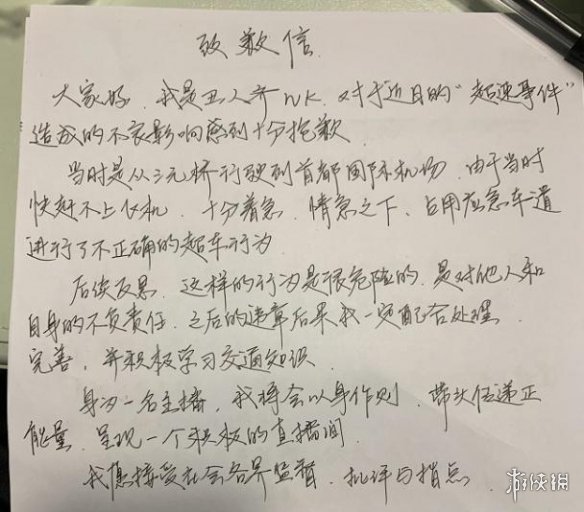 致歉信
大家好，我是丑人齐NK，对于近日的“超速事件”
造成的不良影响感到十分抱歉
当时是从三元桥行驶到首都国际机场，由于当时
快赶不上飞机，十分着急，情急之下，占用应急车道
进行了不正确的超车行为
后续反思，这样的行为是很危险的，是对他人和
自身的不负责任，之后的违章后果我一定配合处理
完善，并积极学习交通知识
身为一名主播，我将会以身作则，带头传递正
能量，呈现一个积极的直播间
我愿接受社会各界监督，批评与指点
游侠网